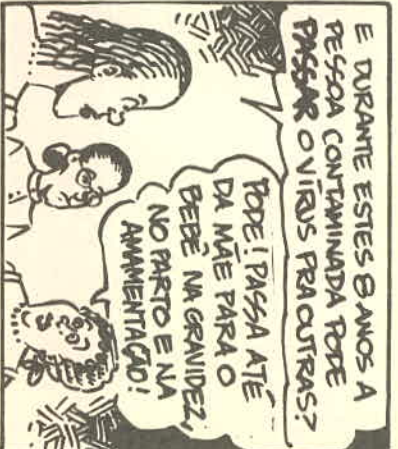 E DURANTE ESTES 8 ANOS A
PESSOA CONTAMINADA PODE
PASSAR O VÍRUS PRA OUTRAS?
PODE! PASSA ATÉ
DA MÃE PARA O
BEBÊ NA GRAVIDEZ,
NO PARTO E NA
AMAMENTAÇÃO!